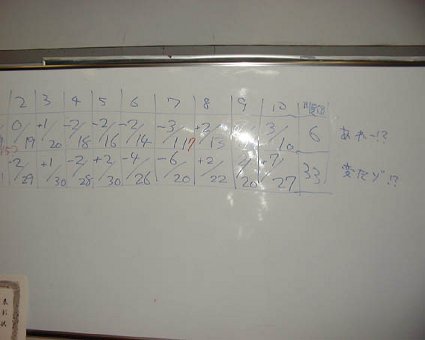 2 3 4 5 6 7 8 9 10
0/19 +1/20 -2/18 -2/16 -2/14 -3/11 7 +2/13 3/10 6 あれー!?
-2/29 +1/30 -2/28 +2/30 -4/26 -6/20 +2/22 /20 +7/27 33 変だゾ!?